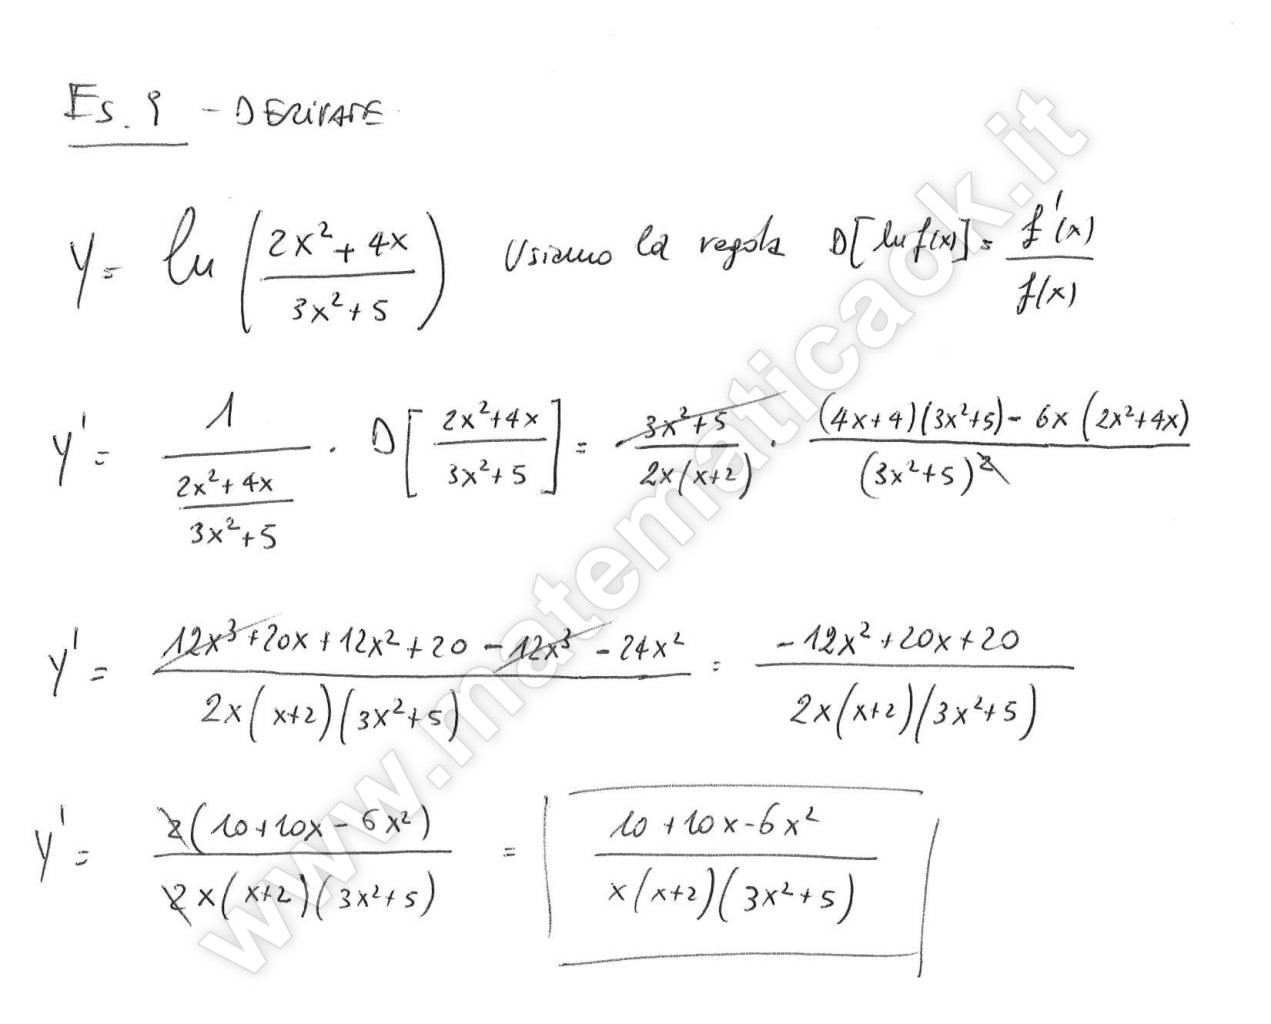 Es. 9 - DERIVATE
y = ln((2x²+4x)/(3x²+5)) Usiamo la regola D[ln f(x)] = f'(x)/f(x)
y' = 1/((2x²+4x)/(3x²+5)) · D[(2x²+4x)/(3x²+5)] = (3x²+5)/(2x(x+2)) · ((4x+4)(3x²+5) - 6x(2x²+4x))/(3x²+5)²
y' = (12x³+20x+12x²+20-12x³-24x²)/(2x(x+2)(3x²+5)) = (-12x²+20x+20)/(2x(x+2)(3x²+5))
y' = 2(10+10x-6x²)/(2x(x+2)(3x²+5)) = (10+10x-6x²)/(x(x+2)(3x²+5))
www.matematicaok.it